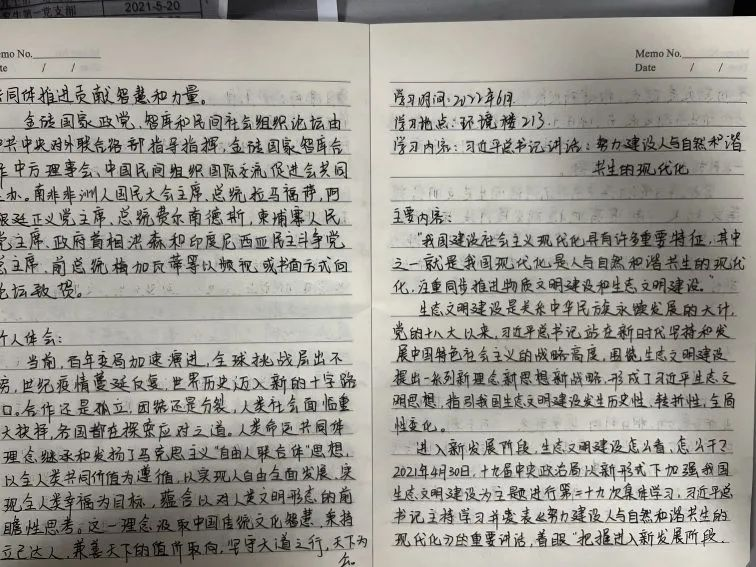 第一党支部
2021-5-20
mo No.
te / /
同体推进贡献智慧和力量。
金砖国家政党、智库和民间社会组织论坛由
共中央对外联络部指导指挥,金砖国家智库合
作中方理事会、中国民间组织国际交流促进会共同
办。南非非洲人国民大会主席、总统拉马福萨,阿
根廷正义党主席、总统费尔南德斯,柬埔寨人民
党主席、政府首相洪森和印度尼西亚民主斗争党
总主席、前总统梅加瓦蒂等以视频或书面方式向
论坛致贺。
个人体会:
当前,百年变局加速演进,全球挑战层出不
穷,世纪疫情蔓延反复,世界历史迈入新的十字路
口。合作还是孤立,团结还是分裂,人类社会面临重
大抉择,各国都在探索应对之道。人类命运共同体
理念继承和发扬了马克思主义“自由人联合体”思想,
以全人类共同价值为遵循,以实现人自由全面发展、实
现全人类幸福为目标,蕴含以对人类文明形态的前
瞻性思考。这一理念汲取中国传统文化智慧,秉持
立己达人、兼善天下的价值取向,坚守大道之行,天下为
公
Memo No.
Date / /
学习时间:2022年6月
学习地点:环境楼213
学习内容:习近平总书记讲话:努力建设人与自然和谐
共生的现代化
主要内容:
“我国建设社会主义现代化具有许多重要特征,其中
之一就是我国现代化是人与自然和谐共生的现代
化,注重同步推进物质文明建设和生态文明建设。”
生态文明建设是关乎中华民族永续发展的大计,
党的十八大以来,习近平总书记站在新时代坚持和发
展中国特色社会主义的战略高度,围绕生态文明建设
提出一系列新理念新思想新战略,形成了习近平生态文
明思想,指引我国生态文明建设发生历史性、转折性、全局
性变化。
进入新发展阶段,生态文明建设怎么看、怎么干?
2021年4月30日,十九届中央政治局以新形式下加强我国
生态文明建设为主题进行第二十九次集体学习,习近平总
书记主持学习并发表《努力建设人与自然和谐共生的
现代化》的重要讲话,着眼“把握进入新发展阶段、